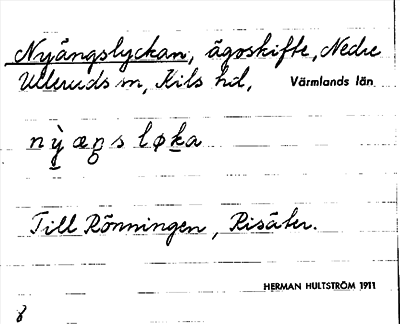 Nyängslyckan, ägoskifte, Nedre
Ulleruds sn, Kils hd, Värmlands län
Till Rönningen, Risäter.
HERMAN HULTSTRÖM 1911
8